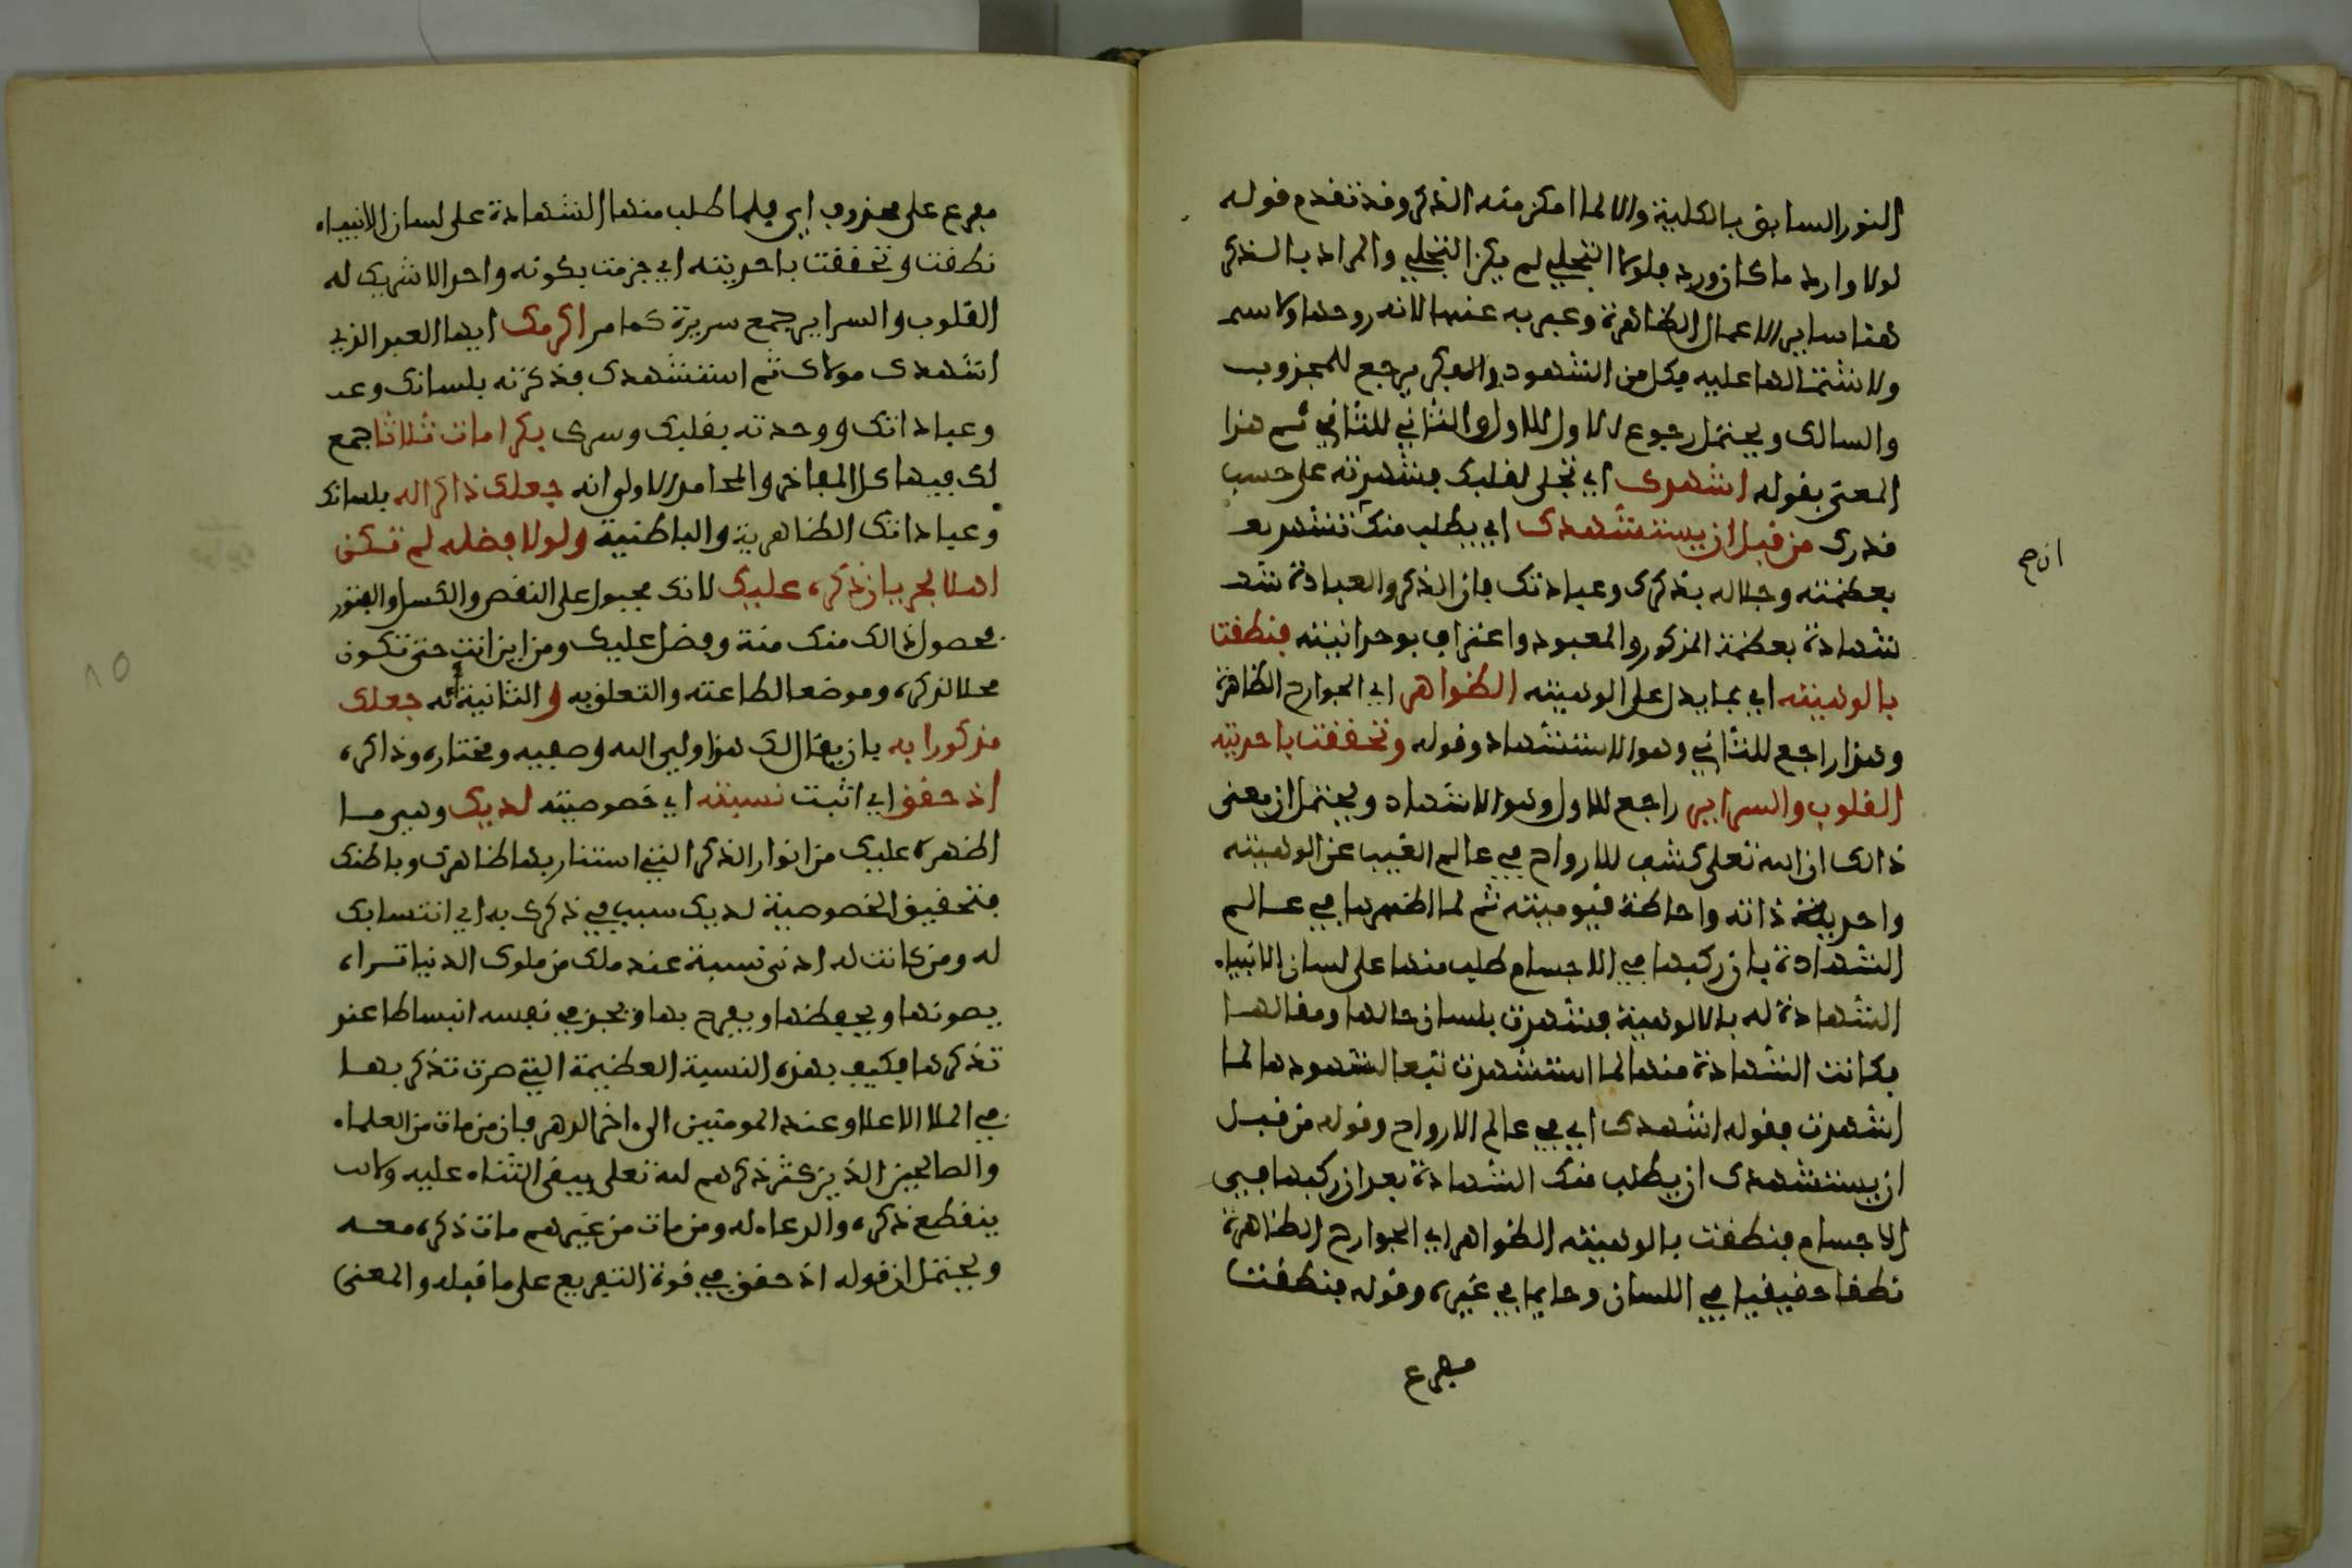 النور السابق بالكلية والا لما امكن منه الذكر وقد تقدم قوله
لولا وارد ما كان ورد فلولا التجلي لم يكن التحلي والمراد بالذكر
هنا ساير الاعمال الظاهرة وعبر به عنها لانه روحها ولاسيما
ولاشتمالها عليه فكل من الشهود والفكر يرجع للمجذوب
والسالك ويحتمل رجوع الاول للاول والثاني للثاني ثم هذا
المعنى بقوله اشهدك اي تجلى لقلبك فشهدته على حسب
قدرك من قبل ان يستشهدك اي يطلب منك تشهد
بعظمته وجلاله بذكرك وعبادتك فان الذكر والعبادة
شهادة بعظمة المذكور والمعبود واعتراف بوحدانيته فنطقت
بالوهيته اي بما يدل على الوهيته الظواهر اي الجوارح الظاهرة
وهذا راجع للثاني وهو الاستشهاد وقوله وتحققت باحديته
القلوب والسراير راجع للاول وهو الاشهاد ويحتمل ان معنى
ذالك ان الله تعلى كشف للارواح في عالم الغيب عن الوهيته
واحدية ذاته واحاطة قيوميته ثم لما اظهرها في عالم
الشهادة بان ركبها في الاجسام طلب منها على لسان الانبياء
الشهادة له بالالوهية فشهدت بلسان حالها ومقالها
فكانت الشهادة منها لما استشهدت تبعا لشهودها لما
اشهدت فقوله اشهدك اي في عالم الارواح وقوله من قبل
ان يستشهدك ان يطلب منك الشهادة بعد ان ركبها في
الاجسام فنطقت بالوهيته الظواهر اي الجوارح الظاهرة
نطقا حقيقيا في اللسان وحاليا في غيره وقوله فنطقت
مفرع
ان صح
مفرع على محذوف اي فلما طلب منها الشهادة على لسان الانبياء
نطقت وتحققت باحديته اي جزمت بكونه واحدا لا شريك له
القلوب والسراير جمع سريرة كما مر اكرمك ايها العبد الذي
اشهدك مولاك ثم استشهدك فذكرته بلسانك و
وعباداتك ووحدته بقلبك وسرك بكرامات ثلاثا جمع
لك فيها كل المفاخر والمحامد الاولى انه جعلك ذاكرا له بلسانك
وعباداتك الظاهرية والباطنية ولولا فضله لم تكن
اهلا لجريان ذكره عليك لانك مجبول على النقص والكسل والفتور
فحصول ذالك منك منة وفضل عليك ومن اين انت حتى تكون
محلا لذكره وموضعا لطاعته والتعلق به والثانية انه جعلك
مذكورا به بان يقال لك هذا ولي الله وصفيه ومختاره وذاكره
اذ حقق اي اثبت نسبته اي خصوصيته لديك وهي ما
اظهره عليك من انوار الذكر التي استنار بها ظاهرك وباطنك
فتحقيق الخصوصية لديك سبب في ذكرك به اي انتسابك
له ومن كانت له ادنى نسبة عند ملك من ملوك الدنيا تراه
يصونها ويحفظها ويفرح بها ويجد في نفسه انبساطا عند
تذكرها فكيف بهذه النسبة العظيمة التي صرت تذكر بها
في الملا الاعلا وعند المومنين الى اخر الدهر فان من مات من العلماء
والصالحين الذين كثر ذكرهم لله تعلى يبقى الثناء عليه ولا
ينقطع ذكره والدعاء له ومن مات من غيرهم مات ذكره معه
ويحتمل ان قوله اذ حقق في قوة التفريع على ما قبله والمعنى